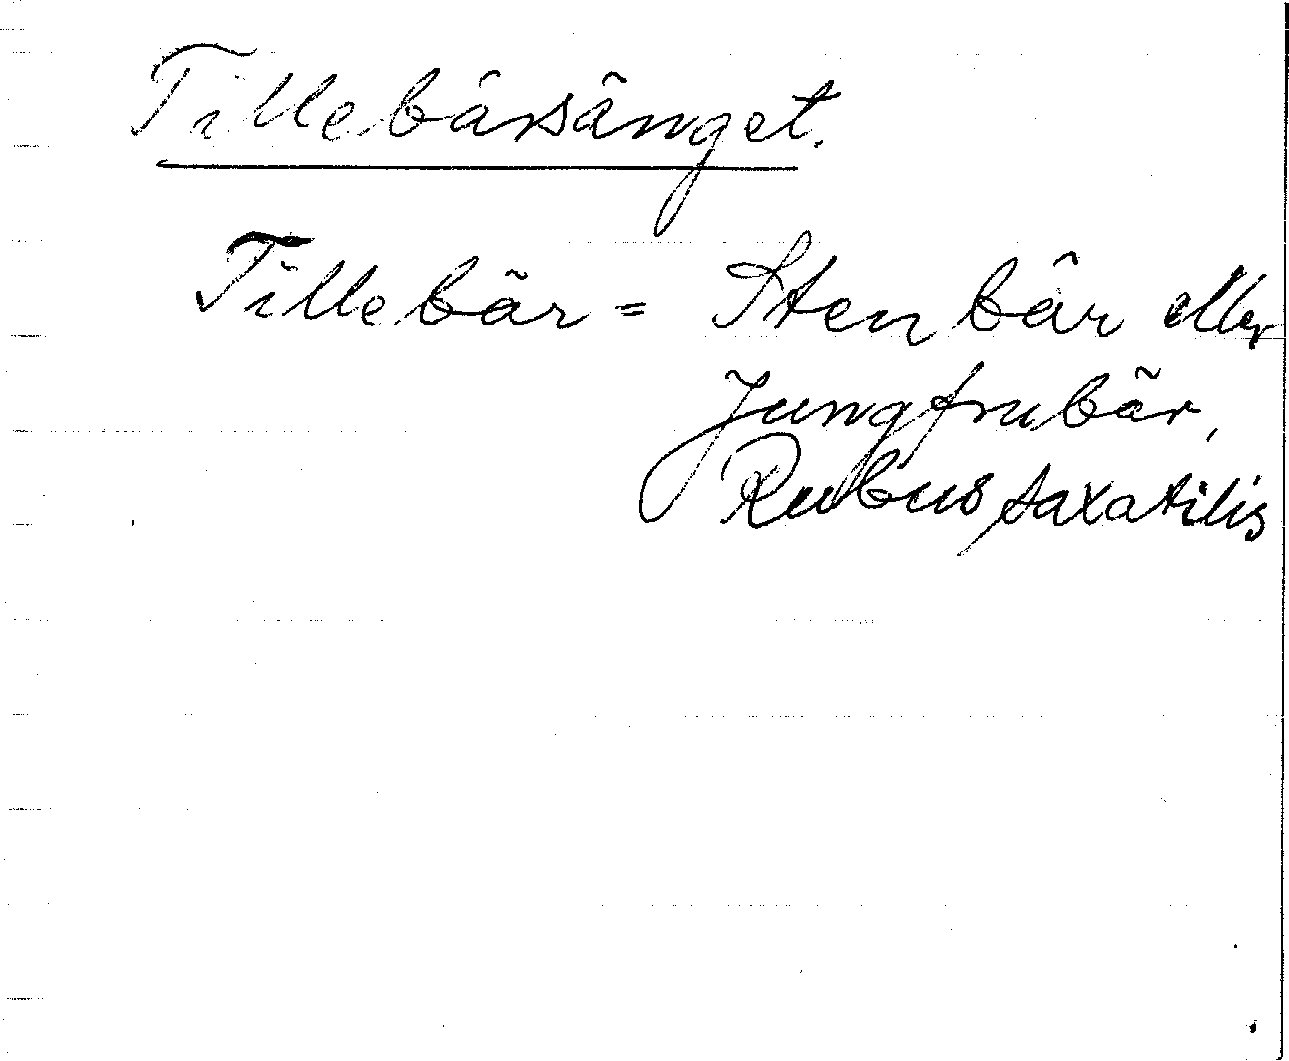 Tillebärsänget.
Tillebär = Stenbär eller
Jungfrubär,
Rubus saxatilis